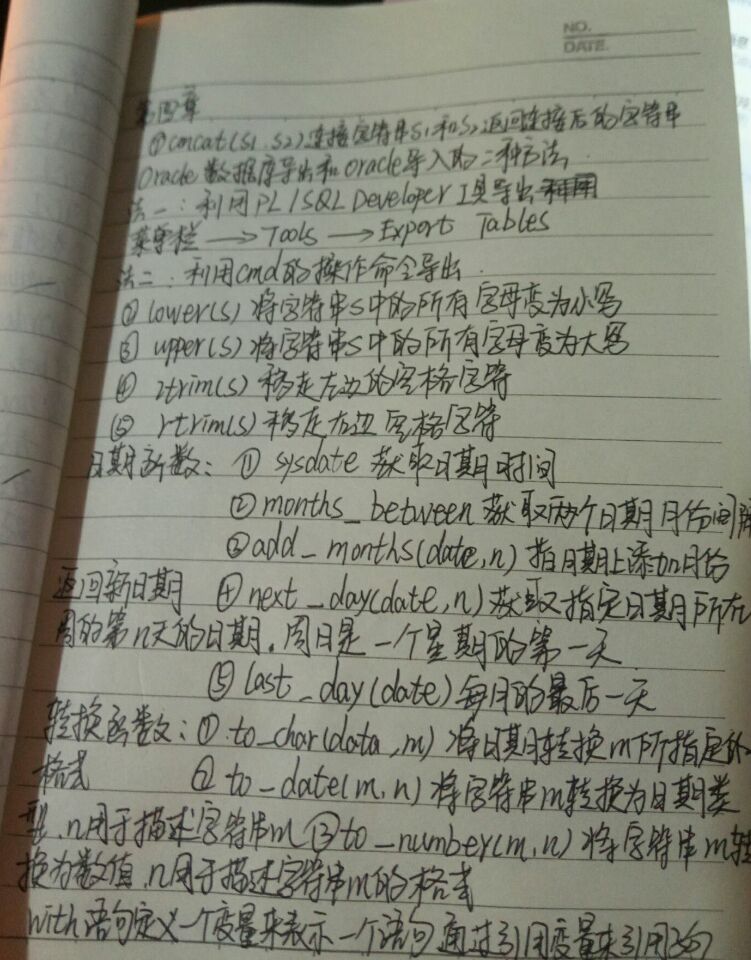 NO.
DATE.
第四章
①concat(s1.s2)连接字符串s1和s2返回连接后的字符串
Oracle数据库导出和oracle导入的二种方法
法一:利用PL/SQL Developer工具导出利用
菜单栏→Tools→Export Tables
法二:利用cmd的操作命令导出.
②lower(s)将字符串s中的所有字母变为小写
③upper(s)将字符串s中的所有字母变为大写
④ltrim(s)移走左边的空格字符
⑤rtrim(s)移走右边空格字符
日期函数:①sysdate获取日期时间
②months_between获取两个日期月份间隔
③add_months(date,n)指日期上添加月份
返回新日期 ④next_day(date,n)获取指定日期所在
周的第n天的日期.周日是一个星期的第一天
⑤last_day(date)每月的最后一天
转换函数:①to_char(data,m)将日期转换m所指定的
格式 ②to_date(m,n)将字符串m转换为日期类
型.n用于描述字符串m③to_number(m,n)将字符串m转
换为数值.n用于描述字符串m的格式
with语句定义一个变量来表示一个语句通过引用变量来引用